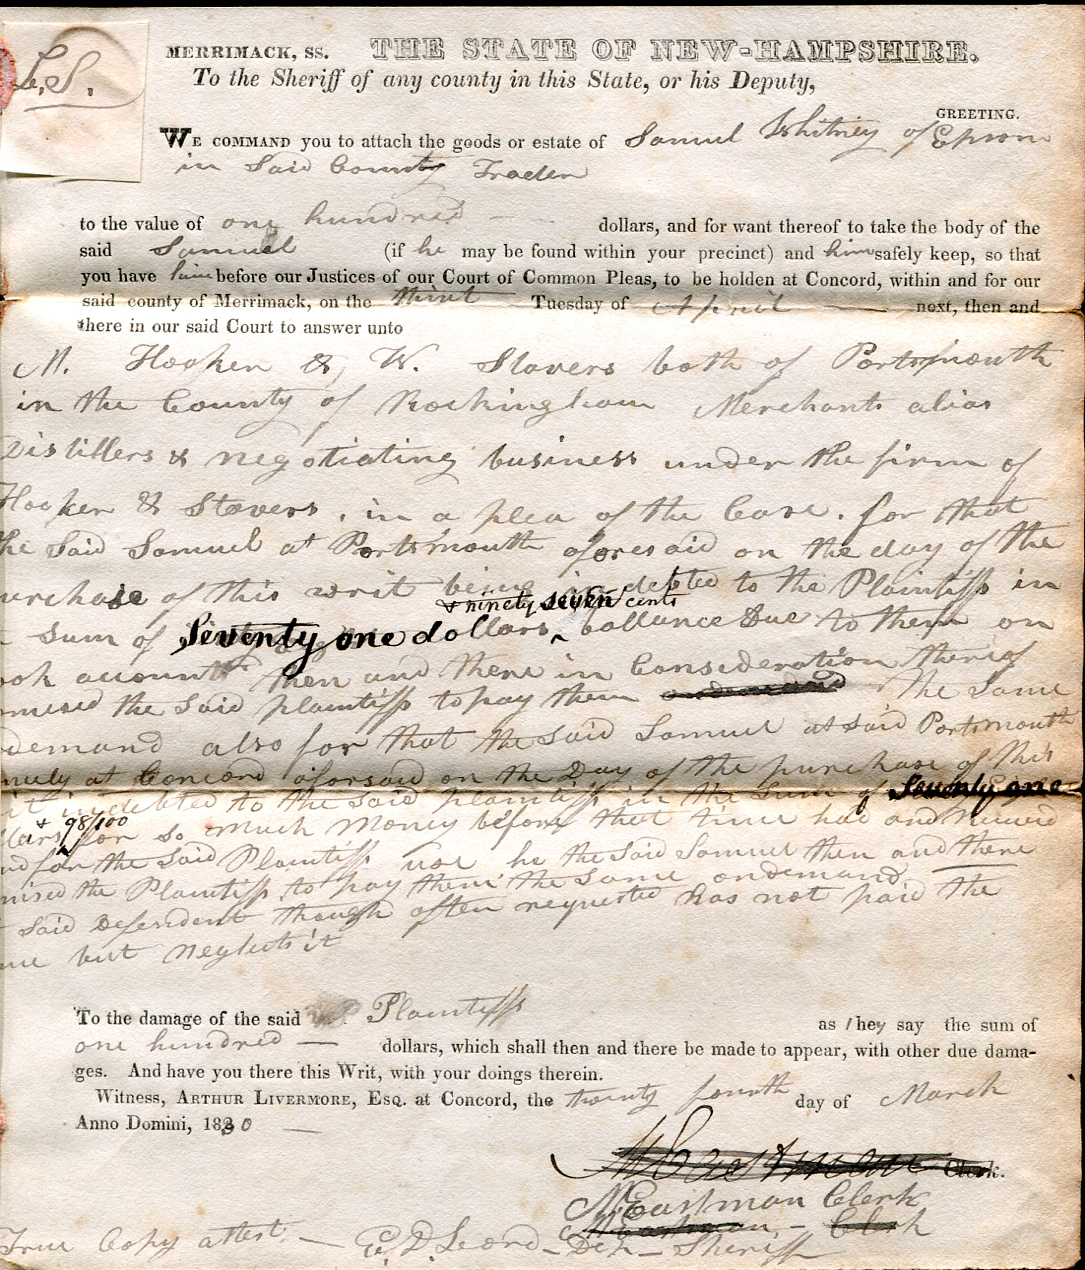 L. S.
MERRIMACK, SS. THE STATE OF NEW-HAMPSHIRE.
To the Sheriff of any county in this State, or his Deputy,
GREETING.
WE COMMAND you to attach the goods or estate of Samuel Whitney of Epsom
in Said County Trader
to the value of one hundred dollars, and for want thereof to take the body of the
said Samuel (if he may be found within your precinct) and him safely keep, so that
you have him before our Justices of our Court of Common Pleas, to be holden at Concord, within and for our
said county of Merrimack, on the third Tuesday of April next, then and
there in our said Court to answer unto
M. Hooker & W. Stavers both of Portsmouth
in the County of Rockingham Merchants alias
Distillers & negotiating business under the firm of
Hooker & Stavers, in a plea of the Case. for that
the Said Samuel at Portsmouth aforesaid on the day of the
urchase of this writ being indebted to the Plaintiffs in
& ninety seven cents
sum of Seventy one dollars ‸ ballance Due to them on
ook account then and there in Consideration thereof
omised the Said plaintiffs to pay them the Same
demand also for that the Said Samuel at Said Portsmouth
mely at Concord aforsaid on the Day of the purchase of this
it indebted to the Said plaintiffs in the Sum of Seventy one
llars & 98/100 for so much Money before that time had and receved
nd for the Said Plaintiffs use he the Said Samuel then and there
mised the Plaintiffs to pay them the Same on demand
Said Defendent though often requested has not paid the
me but neglects it
To the damage of the said Plaintiffs as they say the sum of
one hundred — dollars, which shall then and there be made to appear, with other due dama-
ges. And have you there this Writ, with your doings therein.
Witness, ARTHUR LIVERMORE, ESQ. at Concord, the twenty fourth day of March
Anno Domini, 1830 —
Clerk.
M Eastman Clerk
M Eastman - Clerk
True Copy attest. — E. D. Leord - Dep - Sheriff